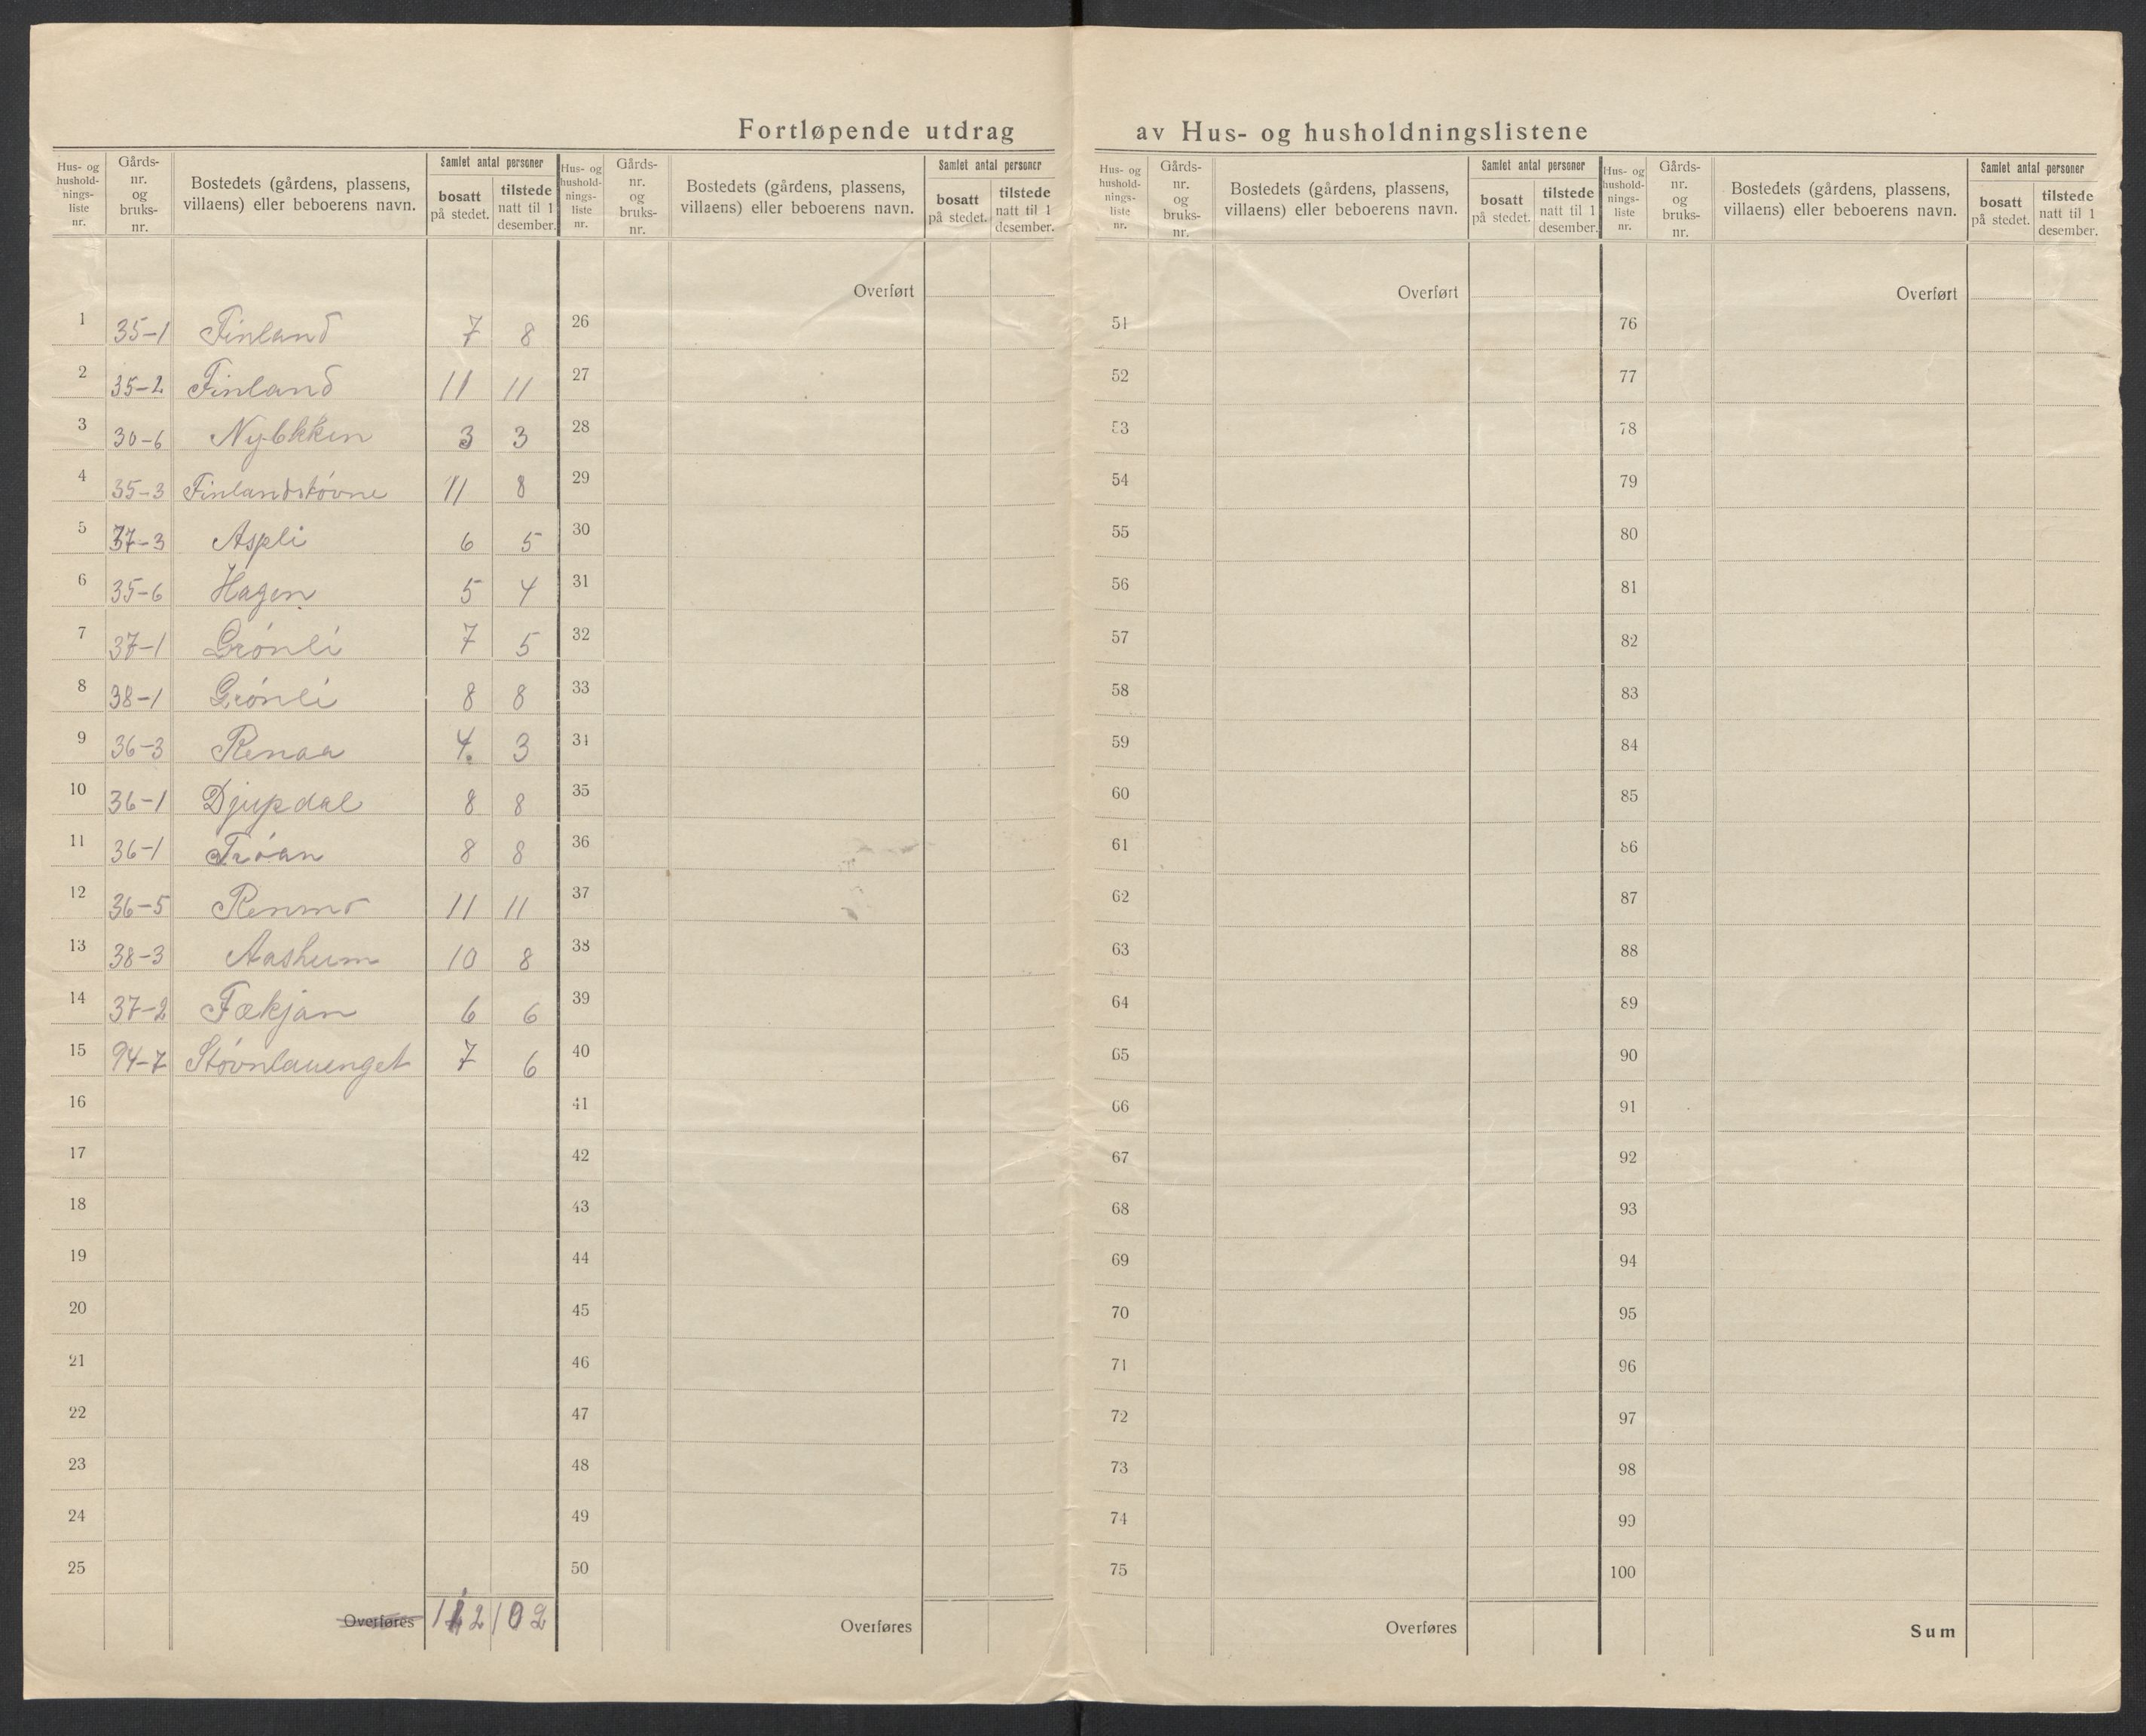 Fortløpende utdrag av Hus- og husholdningslistene
Hus- og husholdningsliste nr. | Gårds-nr. og bruks-nr. | Bostedets (gårdens, plassens, villaens) eller beboerens navn. | Samlet antal personer | bosatt på stedet. | tilstede natt til 1 desember.
Hus- og husholdningsliste nr. | Gårds-nr. og bruks-nr. | Bostedets (gårdens, plassens, villaens) eller beboerens navn. | Samlet antal personer | bosatt på stedet. | tilstede natt til 1 desember.
Hus- og husholdningsliste nr. | Gårds-nr. og bruks-nr. | Bostedets (gårdens, plassens, villaens) eller beboerens navn. | Samlet antal personer | bosatt på stedet. | tilstede natt til 1 desember.
Hus- og husholdningsliste nr. | Gårds-nr. og bruks-nr. | Bostedets (gårdens, plassens, villaens) eller beboerens navn. | Samlet antal personer | bosatt på stedet. | tilstede natt til 1 desember.
1 35-1 Finland 7 8
2 35-2 Finland 11 11
3 30-6 3 3
4 35-3 Finlandstóvne 11 8
5 37-3 Aspli 6 5
6 35-6 Hagen 5 4
7 37-1 Grónli 7 5
8 38-1 Grónli 8 8
9 36-3 Renaa 4. 3
10 36-1 Djupdal 8 8
11 36-1 Tróan 8 8
12 36-5 Renmo 11 11
13 38-3 Aasheim 10 8
14 37-2 Fækjan 6 6
15 94-7 Stóvnlauenget 7 6
16
17
18
19
20
21
22
23
24
25
Overføres 112 102
Overført
26
27
28
29
30
31
32
33
34
35
36
37
38
39
40
41
42
43
44
45
46
47
48
49
50
Overføres
Overført
51
52
53
54
55
56
57
58
59
60
61
62
63
64
65
66
67
68
69
70
71
72
73
74
75
Overføres
Overført
76
77
78
79
80
81
82
83
84
85
86
87
88
89
90
91
92
93
94
95
96
97
98
99
100
Sum